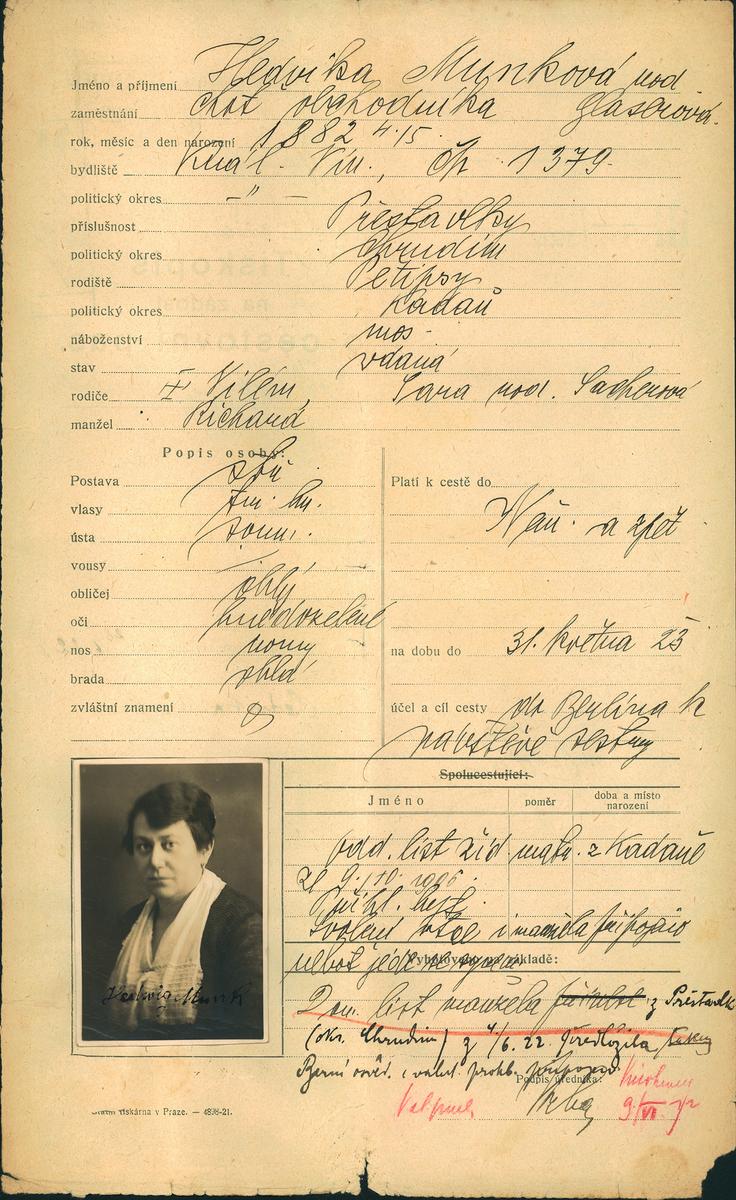 Jméno a příjmení Hedvika Munková rod
zaměstnání choť obchodníka Glaserová.
rok, měsíc a den narození 1882 4.15.
bydliště Král. Vin., čp. 1379.
politický okres -"-
příslušnost Přestavlky
politický okres Chrudim
rodiště Pětipsy
politický okres Kadaň
náboženství mos.
stav vdaná
rodiče Vilém, Sara rod. Sacherová
manžel Richard
Popis osoby:
Postava
vlasy
ústa
vousy
obličej oblý
oči hnědozelené
nos
brada oblá
zvláštní znamení
Platí k cestě do
Něm. a zpět
na dobu do 31. května 23
účel a cíl cesty do Berlína k
návštěvě sestry
Spolucestující:
Jméno
poměr
doba a místo
narození
odd. list žid. matr. z Kadaně
z 9./10. 1906.
Přihl.
i manžela připojeno
neboť jede
Vyhotoveno na základě:
Dom. list manžela z Přestavlk
(okr. Chrudim) z 4/6. 22. předložila
Berní osvěd. i
Podpis úředníka:
9/VI
Hedwig Munk
Státní tiskárna v Praze. — 4898-21.